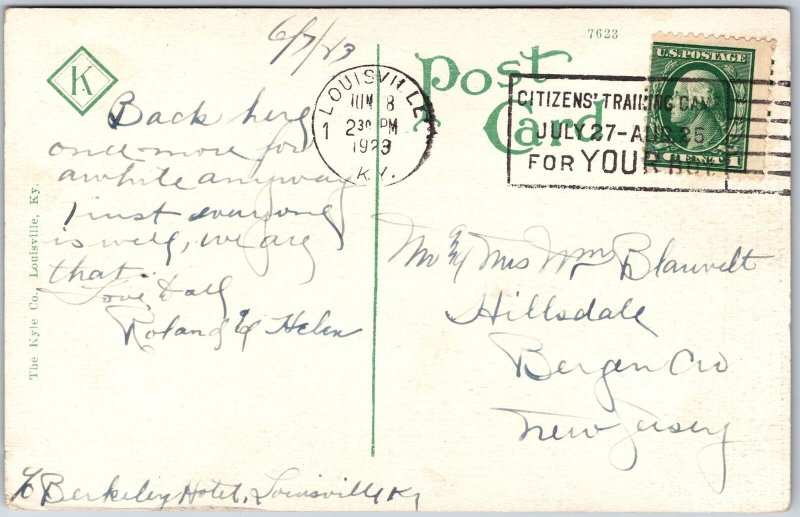 6/7/23
7623
K
Post Card
U.S. POSTAGE
1 CENT 1
LOUISVILLE
JUN 8
1 2 30 PM
1923
KY.
CITIZENS' TRAINING CAMP
JULY 27-AUG 25
FOR YOUR BOY
Back here
once more for
awhile anyway
I trust everyone
is well, we are
that.
Love to all
Roland & Helen
Mr & Mrs Wm Blauvelt
Hillsdale
Bergen Co
New Jersey
c/o Berkeley Hotel, Louisville Ky
The Kyle Co., Louisville, Ky.